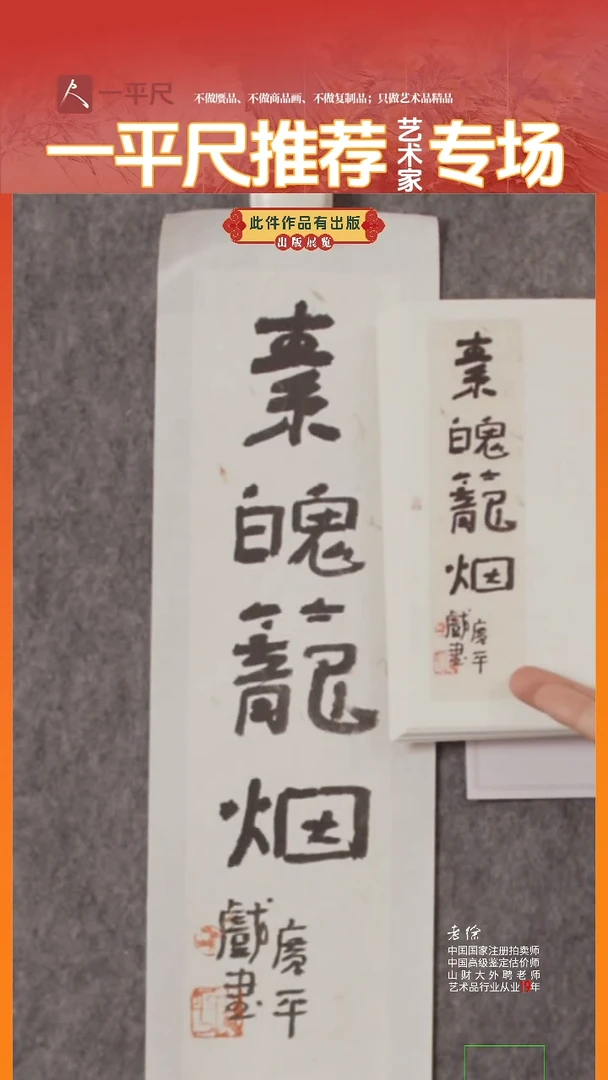 一平尺
不做赝品、不做商品画、不做复制品；只做艺术品精品
一平尺推荐艺术家专场
此件作品有出版
出版展览
素魄籠烟
廣平
戲書
素魄籠烟
廣平
戲書
老徐
中国国家注册拍卖师
中国高级鉴定估价师
山财大外聘老师
艺术品行业从业19年